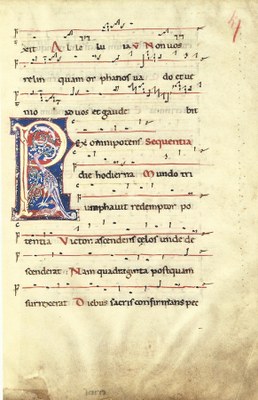 xit A l le lu ia V Non vos
relin quam or phanos va do et ue
nio ad vos et gaude bit
Rex omnipotens Sequentia
die hodierna Mundo tri
umphavit redemptor po
tentia Victor ascendens celos unde de
scenderat Nam quadraginta postquam
surrexerat Diebus sacris confirmans pec